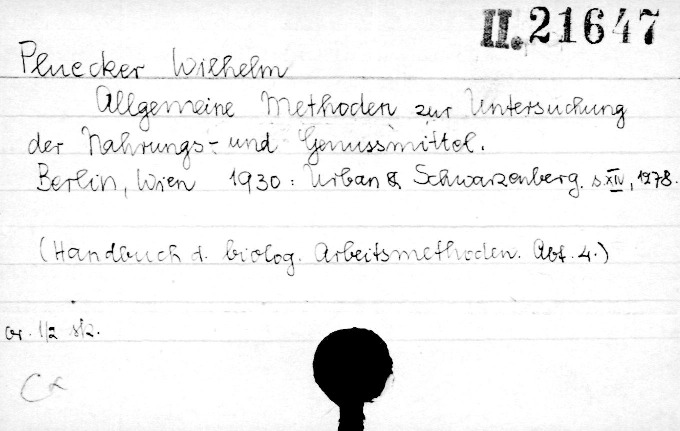 II. 21647
Pluecker Wilhelm
Allgemeine Methoden zur Untersuchung
der Nahrungs- und Genussmittel.
Berlin, Wien 1930: Urban & Schwarzenberg. s. XIV, 1278.
(Handbuch d. biolog. Arbeitsmethoden. Abt. 4.)
1/2 sk.